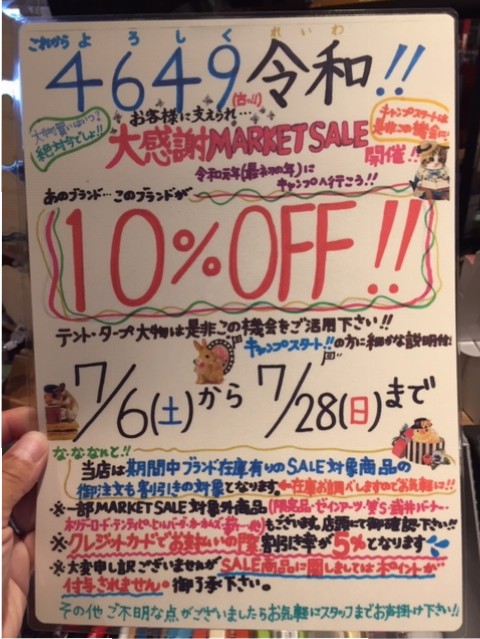 これから よろしく れいわ
4649 令和!!
(古っ!)
大物の買いはいつ?
絶対今でしょ!!
お客様に支えられ…
大感謝MARKET SALE
開催!!
キャンプスタートは
是非この機会に!
令和元年(最初の年)に
キャンプへ行こう!!
あのブランド…このブランドが
10%OFF!!
テント・タープ大物は是非この機会をご活用下さい!!
キャンプスタート!!の方に細かな説明付!
7/6(土)から 7/28(日)まで
な・な・なんと!!
当店は期間中ブランド在庫有りのSALE対象商品の
御注文も割引きの対象となります。←在庫お調べしますのでお気軽に!!
※一部MARKET SALE対象外商品(限定品・ゼインアーツ・
もございます。店頭にて御確認下さい!!
※クレジットカードでお支払いの際 割引き率が5%となります
※大変申し訳ございませんがSALE商品に関しましてはポイントが
付与されません。御了承下さい。
その他ご不明な点がございましたらお気軽にスタッフまでお声掛け下さい!!